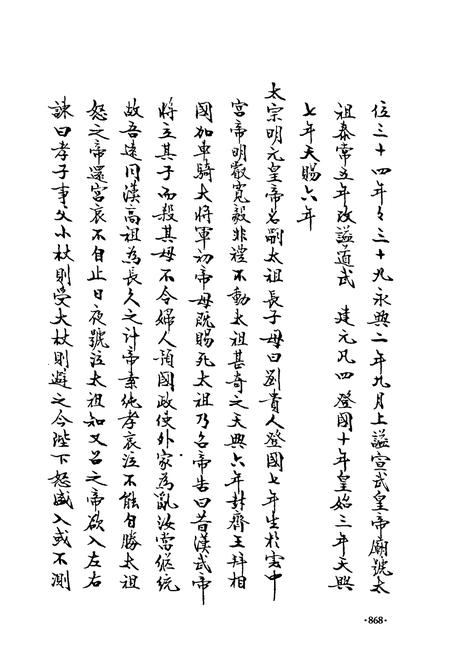 位三十四年年三十九永興二年九月上諡宣武皇帝廟號太
祖泰常五年改諡道武　建元凡四登國十年皇始三年天興
七年天賜六年
太宗明元皇帝名嗣太祖長子母曰劉貴人登國七年生於雲中
宮帝明叡寬毅非禮不動太祖甚奇之天興六年封齊王拜相
國加車騎大將軍初帝母既賜死太祖乃召帝告曰昔漢武帝
將立其子而殺其母不令婦人預國政使外家為亂汝當繼統
故吾遠同漢高祖為長久之計帝素純孝哀泣不能自勝太祖
怒之帝還宮哀不自止日夜號泣太祖知又召之帝欲入左右
諫曰孝子事父小杖則受大杖則避之今陛下怒盛入或不測
·868·